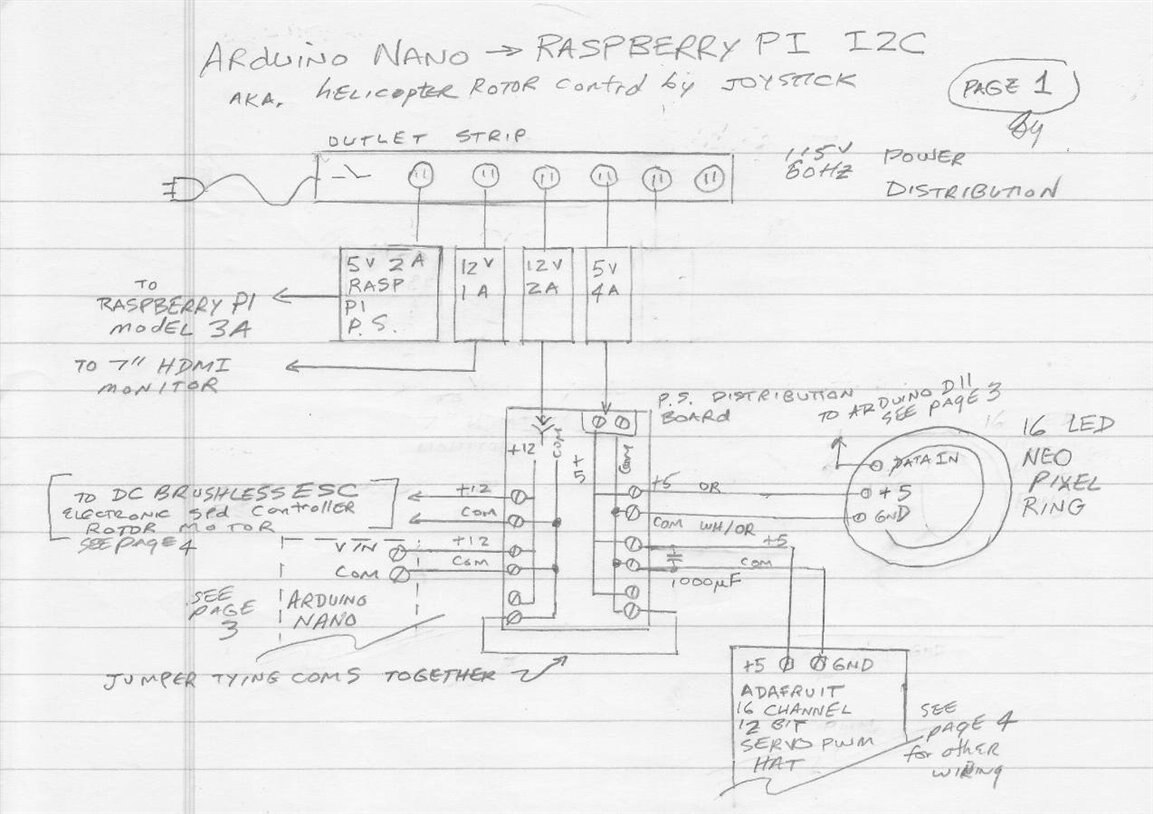 ARduino NANO → RASPBERRY PI I2C
AKA. hELICOPTER ROTOR Control by JOYSTICK
PAGE 1
OUTLET STRIP
115V
60HZ
POWER
DISTRIBUTION
5V 2A
RASP
PI
P.S.
12V
1A
12V
2A
5V
4A
TO
RASPBERRY PI
MODEL 3A
TO 7" HDMI
MONITOR
P.S. DISTRIBUTION
BOARD
TO ARDUINO D11
SEE PAGE 3
16 LED
NEO
PIXEL
RING
DATA IN
+5
GND
+12
COM
+5
COM
TO DC BRUSHLESS ESC
ELECTRONIC SPd Controller
ROTOR MOTOR
SEE PAGE 4
+12
COM
+5 OR
COM WH/OR
VIN
+12
COM
COM
+5
COM
1000µF
SEE
PAGE
3
ARDUINO
NANO
JUMPER TYING COMS TOGETHER
+5 GND
ADAFRUIT
16 CHANNEL
12 BIT
SERVO PWM
HAT
SEE
PAGE 4
for othER
WIRING